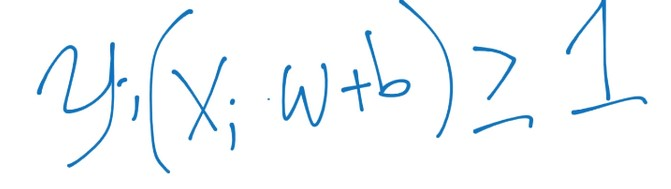 yᵢ(xᵢ · w+b) ≥ 1